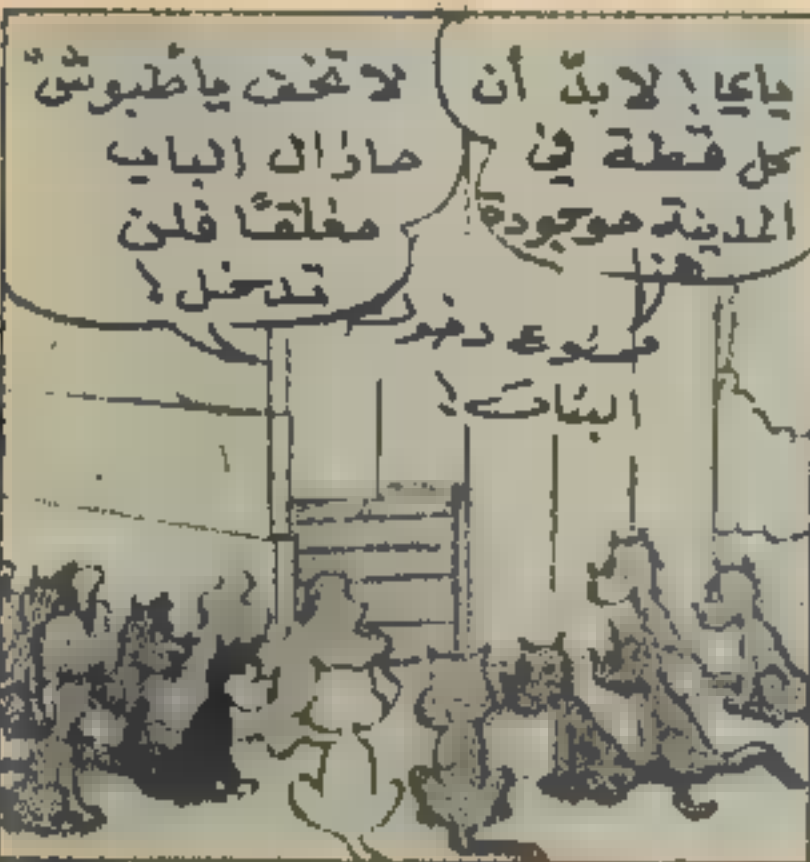 ياي! لا بدّ أن
كل قطة في
المدينة موجودة
هنا
لا تخف يا طبوش
مازال الباب
مغلقًا فلن
تدخل!
البنات!